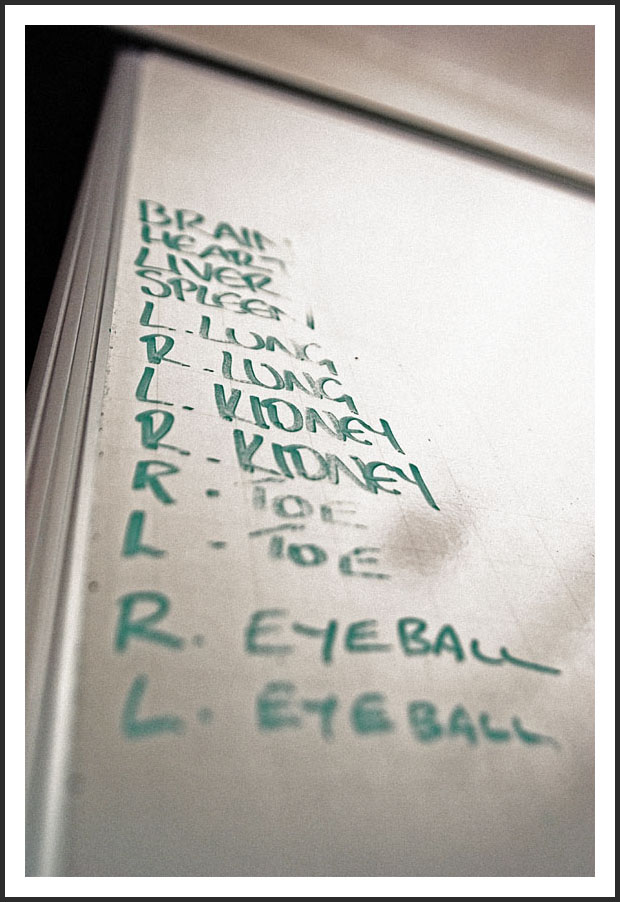 BRAIN
HEART
LIVER
SPLEEN
L. LUNG
R. LUNG
L. KIDNEY
R. KIDNEY
R. TOE
L. TOE
R. EYEBALL
L. EYEBALL